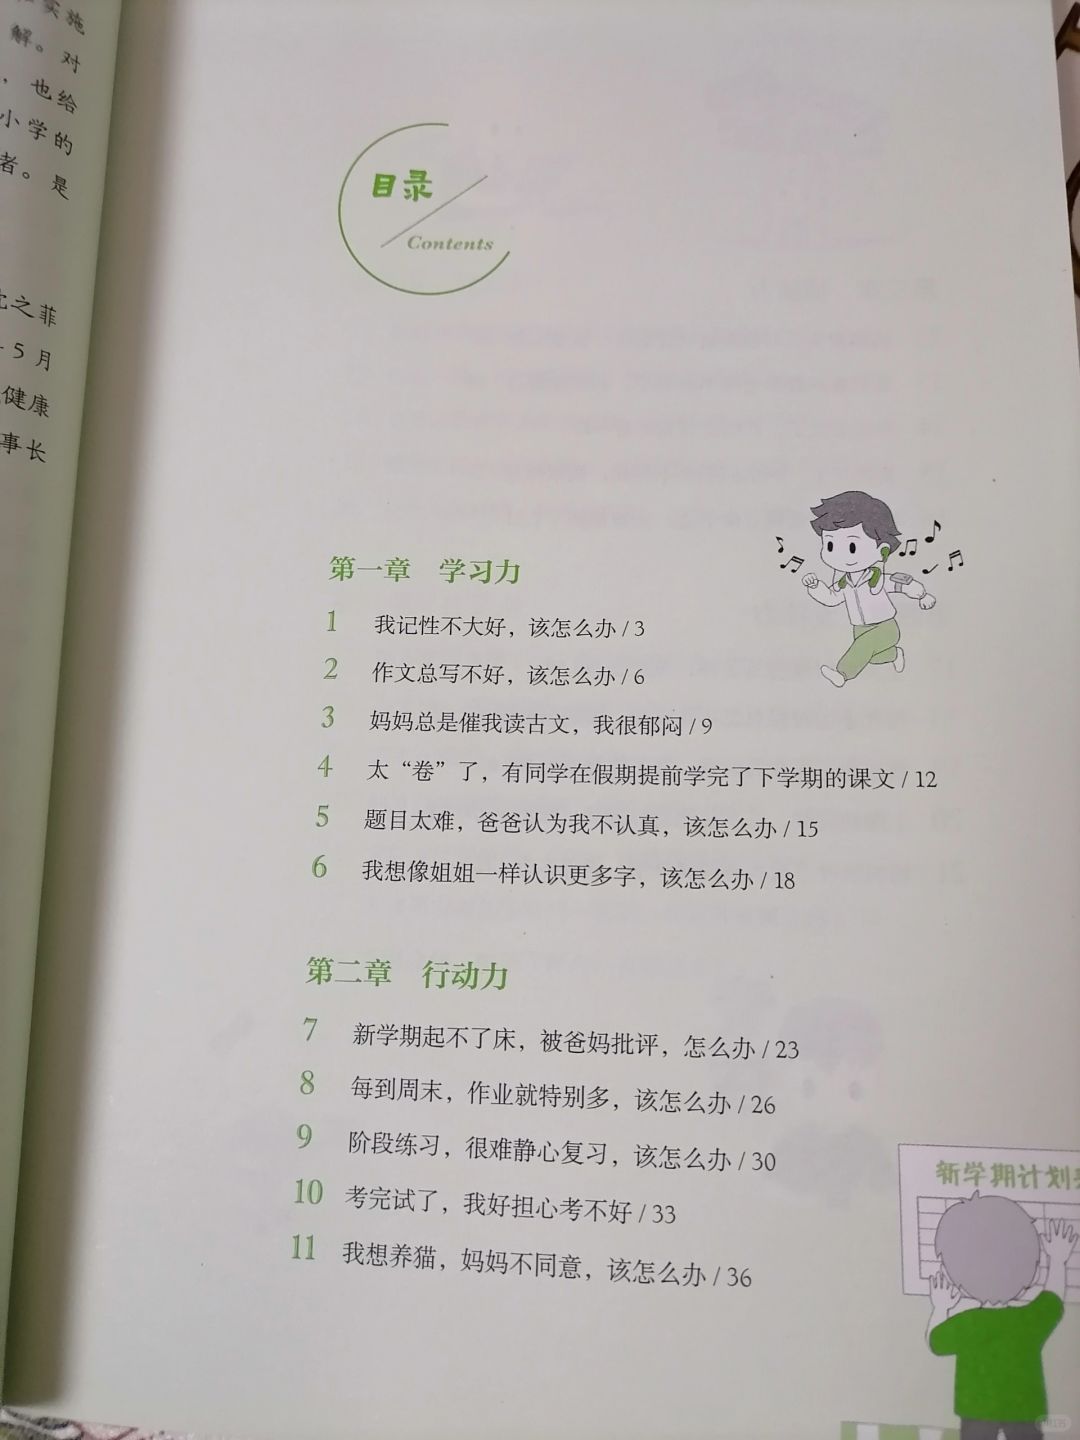 实施
解。对
，也给
小学的
者。是
之菲
5月
健康
事长
目录
Contents
第一章 学习力
1 我记性不大好，该怎么办 / 3
2 作文总写不好，该怎么办 / 6
3 妈妈总是催我读古文，我很郁闷 / 9
4 太“卷”了，有同学在假期提前学完了下学期的课文 / 12
5 题目太难，爸爸认为我不认真，该怎么办 / 15
6 我想像姐姐一样认识更多字，该怎么办 / 18
第二章 行动力
7 新学期起不了床，被爸妈批评，怎么办 / 23
8 每到周末，作业就特别多，该怎么办 / 26
9 阶段练习，很难静心复习，该怎么办 / 30
10 考完试了，我好担心考不好 / 33
11 我想养猫，妈妈不同意，该怎么办 / 36
新学期计划